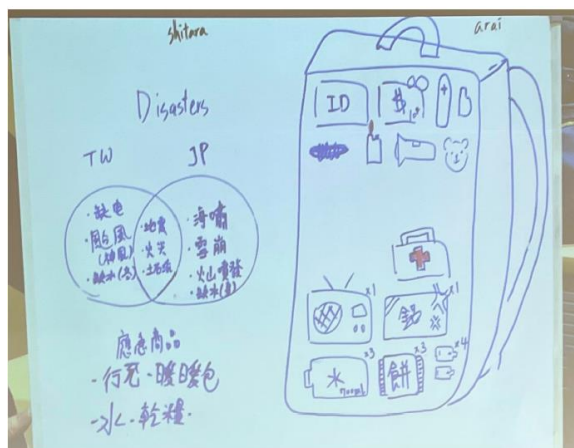 shitara
arai
Disasters
TW
JP
・缺电
・颱風
・缺水(冬)
・地震
・火災
・土石流
・海嘯
・雪崩
・火山噴發
・缺水(夏)
應急商品
・行充・暖暖包
・水・乾糧・
ID
$
x1
鍋
x1
水
700ml
x3
餅
x3
x4